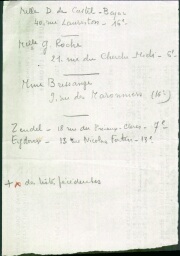 Melle D. de Castel-Bajac
40, rue Lauriston - 16e
Melle G. Roche
29, rue du Cherche Midi - 6e
Mme Bussange
9, rue des Maronniers (16e)
Zendel - 18 rue des - 9e
Eydoux - 13 rue Nicolas Fortin - 13e
+ x des listes précédentes